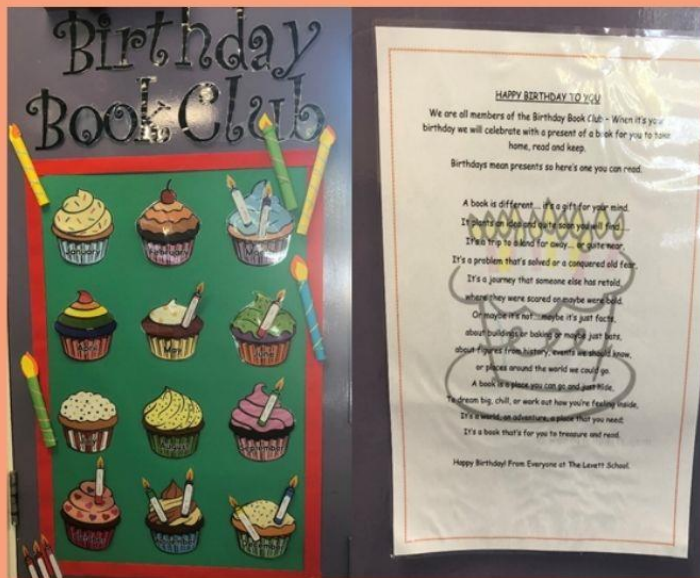 Birthday
Book Club
January
February
HAPPY BIRTHDAY TO YOU
We are all members of the Birthday Book Club - When it's your
birthday we will celebrate with a present of a book for you to take
home, read and keep.
Birthdays mean presents so here's one you can read.
A book is different.... it's a gift for your mind.
It plants an idea and quite soon you will find....
It's a trip to a land far away... or quite near,
It's a problem that's solved or a conquered old fear,
It's a journey that someone else has retold,
where they were scared or maybe were bold.
Or maybe it's not....maybe it's just facts,
about buildings or baking or maybe just bats,
about figures from history, events we should know,
or places around the world we could go.
A book is a place you can go and just hide,
To dream big, chill, or work out how you're feeling inside,
It's a world, an adventure, a place that you need;
It's a book that's for you to treasure and read.
Happy Birthday! From Everyone at The Levett School.